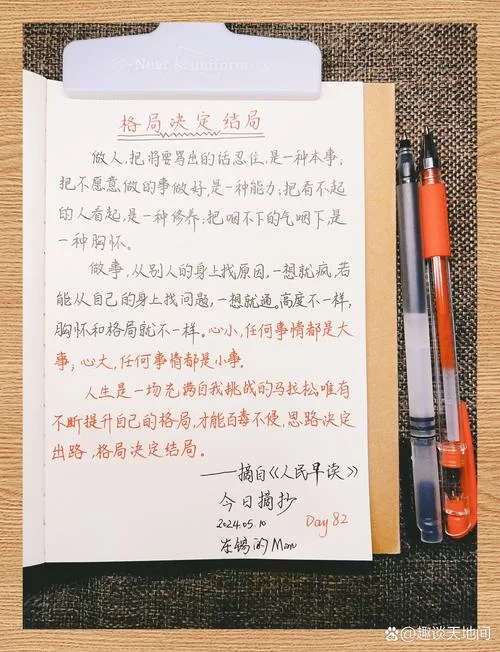 Near & uniform
格局决定结局
做人,把将要骂出的话忍住,是一种本事;
把不愿意做的事做好,是一种能力;把看不起
的人看起,是一种修养;把咽不下的气咽下,是
一种胸怀。
做事,从别人的身上找原因,一想就疯,若
能从自己的身上找问题,一想就通。高度不一样,
胸怀和格局就不一样。心小,任何事情都是大
事;心大,任何事情都是小事。
人生是一场充满自我挑战的马拉松,唯有
不断提升自己的格局,才能百毒不侵,思路决定
出路,格局决定结局。
——摘自《人民早读》
今日摘抄
2024.05.10
Day 82
在锡的Mom
趣谈天地间